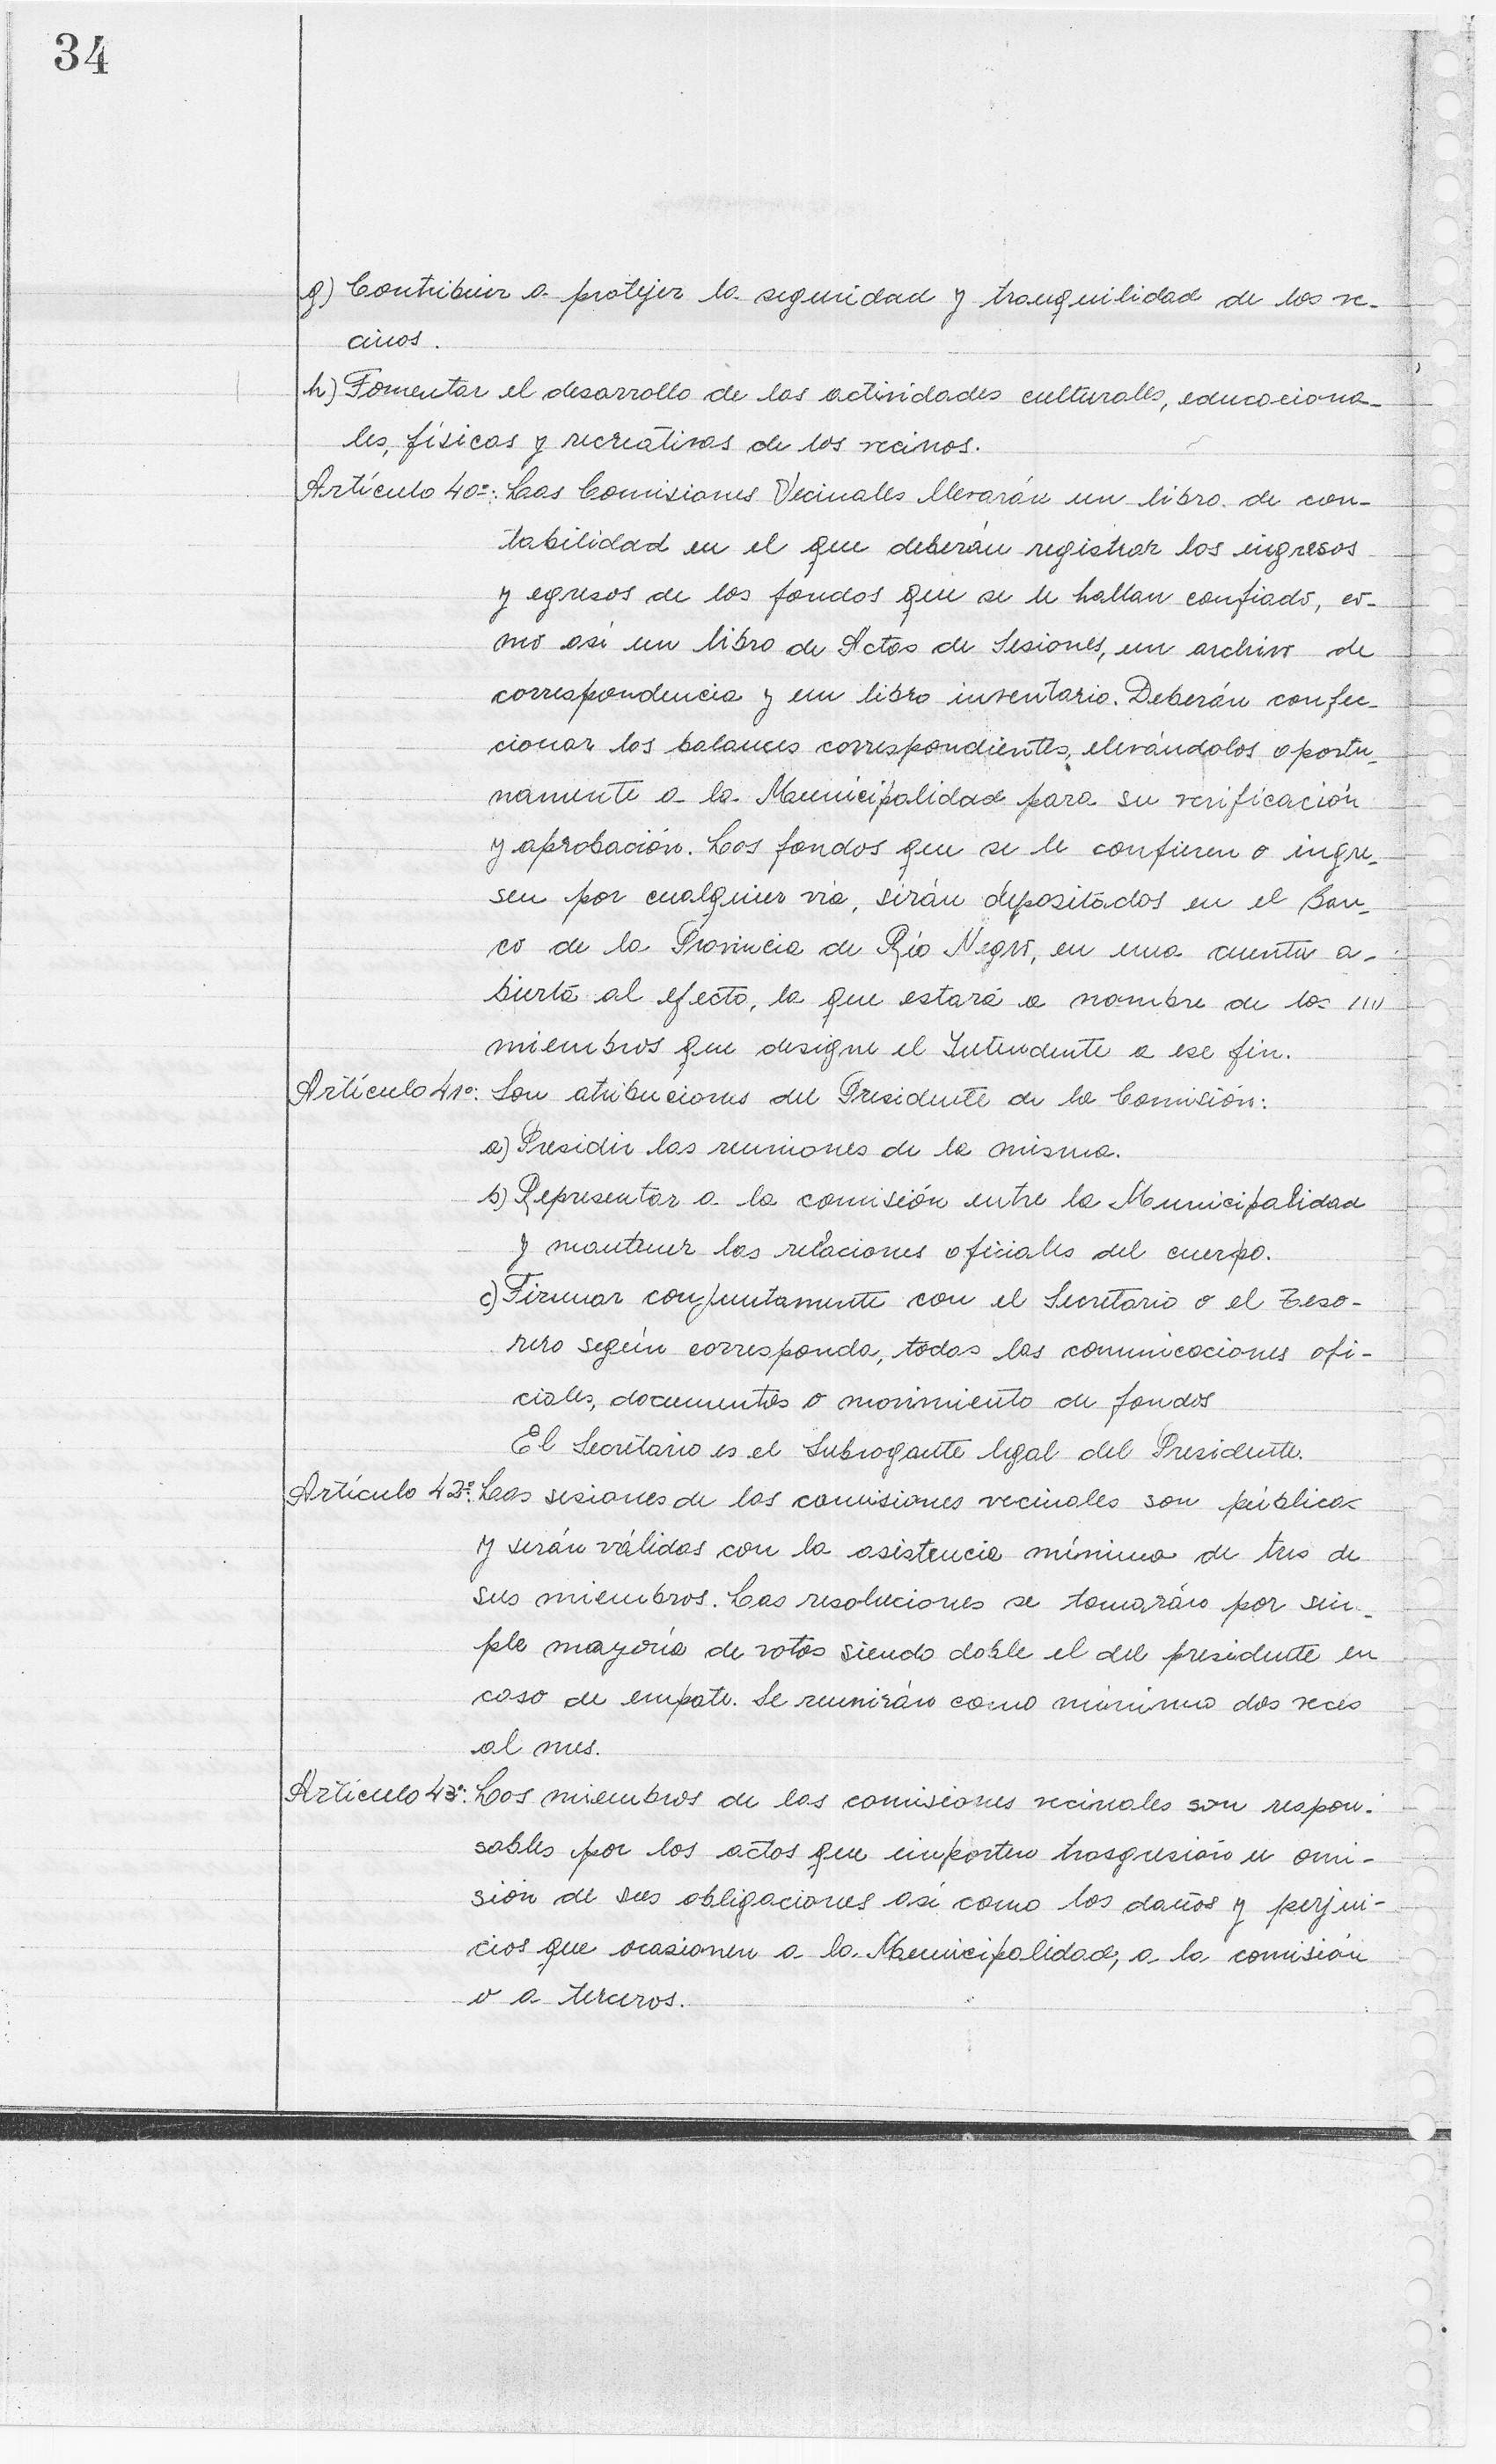 34
g) Contribuir a protejer la seguridad y tranquilidad de los ve-
cinos.
h) Fomentar el desarrollo de las actividades culturales, educaciona-
les, físicas y recreativas de los vecinos.
Artículo 40º: Las Comisiones Vecinales llevarán un libro de con-
tabilidad en el que deberán registrar los ingresos
y egresos de los fondos que se le hallan confiado, co-
mo así un libro de Actas de Sesiones, un archivo de
correspondencia y un libro inventario. Deberán confec-
cionar los balances correspondientes, elevándolos oportu-
namente a la Municipalidad para su verificación
y aprobación. Los fondos que se le confieren o ingre-
sen por cualquier vía, serán depositados en el Ban-
co de la Provincia de Río Negro, en una cuenta a-
bierta al efecto, la que estará a nombre de los ////
miembros que designe el Intendente a ese fin.
Artículo 41º: Son atribuciones del Presidente de la Comisión:
a) Presidir las reuniones de la misma.
b) Representar a la comisión entre la Municipalidad
y mantener las relaciones oficiales del cuerpo.
c) Firmar conjuntamente con el Secretario o el Teso-
rero según corresponda, todas las comunicaciones ofi-
ciales, documentos o movimiento de fondos
El Secretario es el Subrogante legal del Presidente.
Artículo 42º: Las sesiones de las comisiones vecinales son públicas
y serán válidas con la asistencia mínima de tres de
sus miembros. Las resoluciones se tomarán por sim-
ple mayoría de votos siendo doble el del presidente en
caso de empate. Se reunirán como mínimo dos veces
al mes.
Artículo 43º: Los miembros de las comisiones vecinales son respon-
sables por los actos que importen trasgresión u omi-
sión de sus obligaciones así como los daños y perjui-
cios que ocasionen a la Municipalidad, a la comisión
o a terceros.